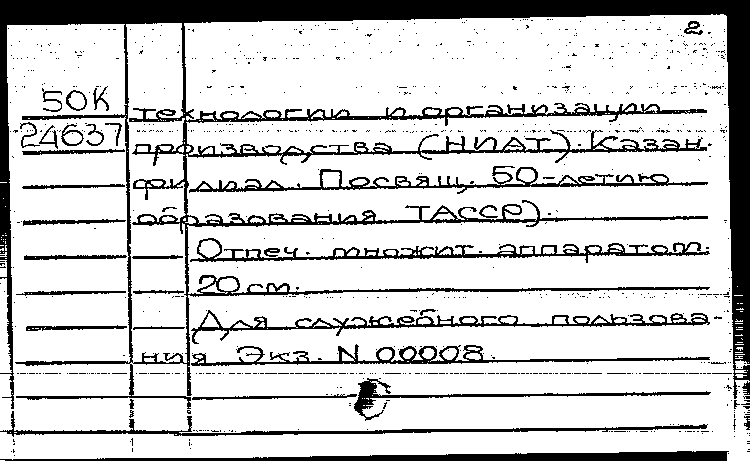 2.
50К технологии и организации
24637 производства (НИАТ). Казан.
филиал. Посвящ. 50-летию
образования ТАССР).
Отпеч. множит. аппаратом.
20 см.
Для служебного пользова-
ния Экз. N 00008.